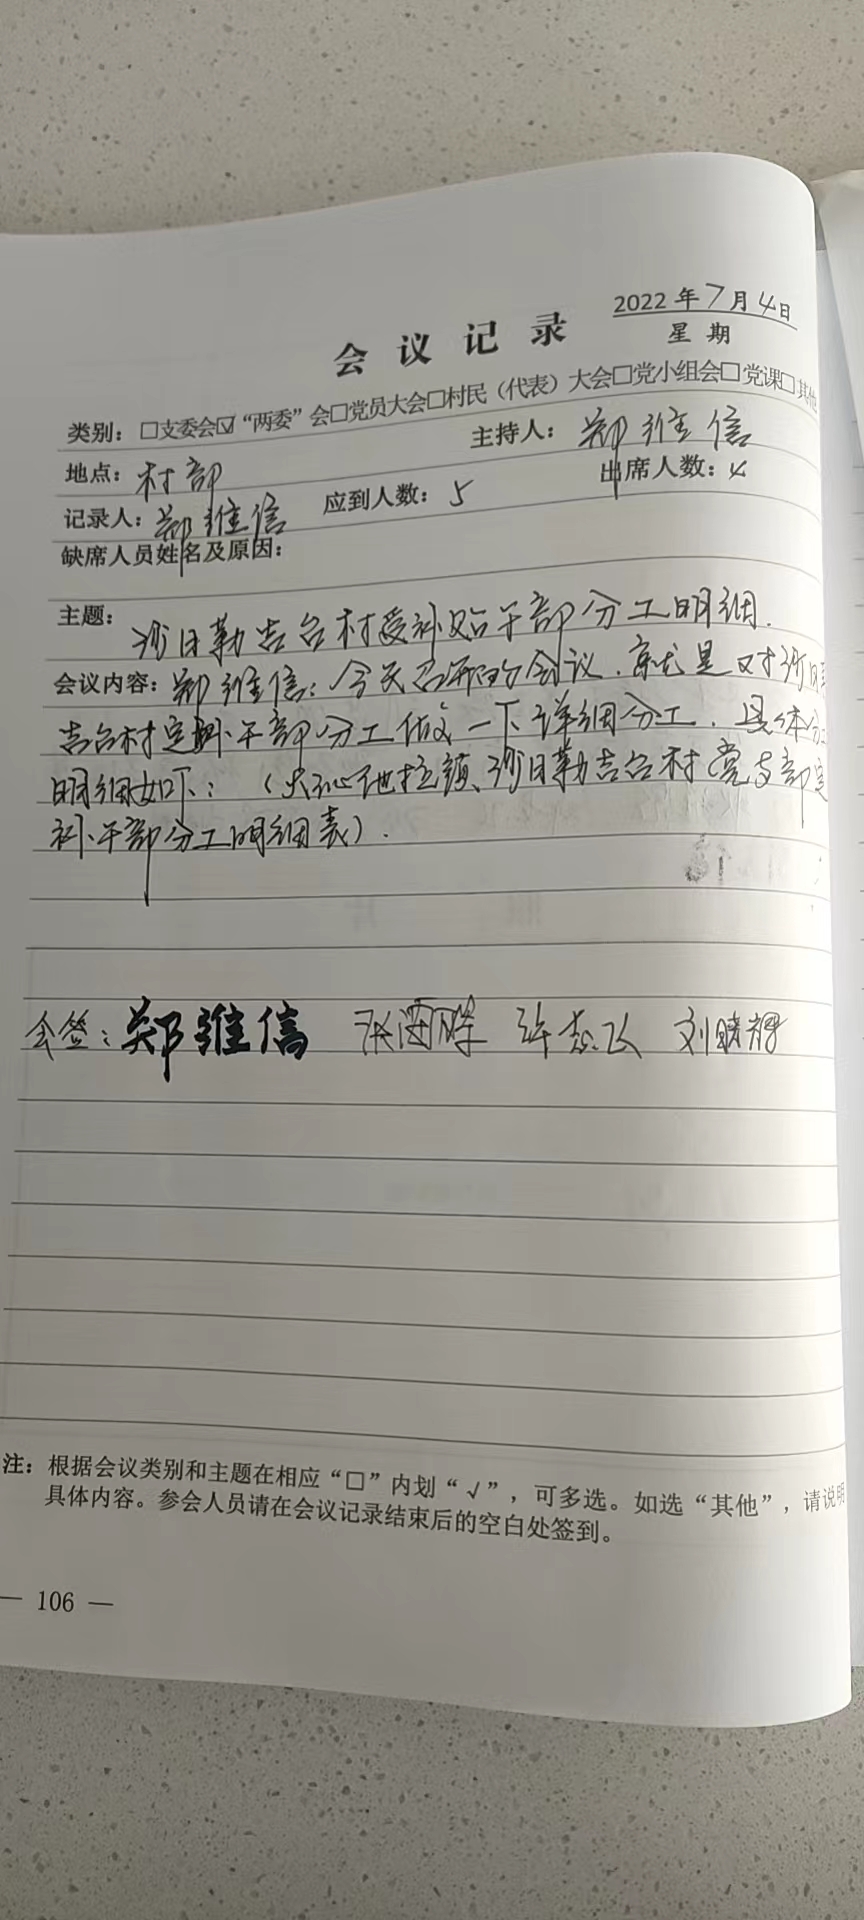 2022年7月4日
会议记录
星期
类别：□支委会☑“两委”会□党员大会□村民（代表）大会□党小组会□党课□其他
主持人：郑维信
地点：村部
出席人数：4
记录人：郑维信
应到人数：5
缺席人员姓名及原因：
主题：沙日勒吉台村受补贴干部分工明细.
会议内容：郑维信：今天召开的会议，就是对沙日勒
吉台村定补干部分工做一下详细分工，具体分工
明细如下：（大沁他拉镇、沙日勒吉台村党支部定
补干部分工明细表）.
会签：郑维信 许志飞
注：根据会议类别和主题在相应“□”内划“√”，可多选。如选“其他”，请说明
具体内容。参会人员请在会议记录结束后的空白处签到。
— 106 —